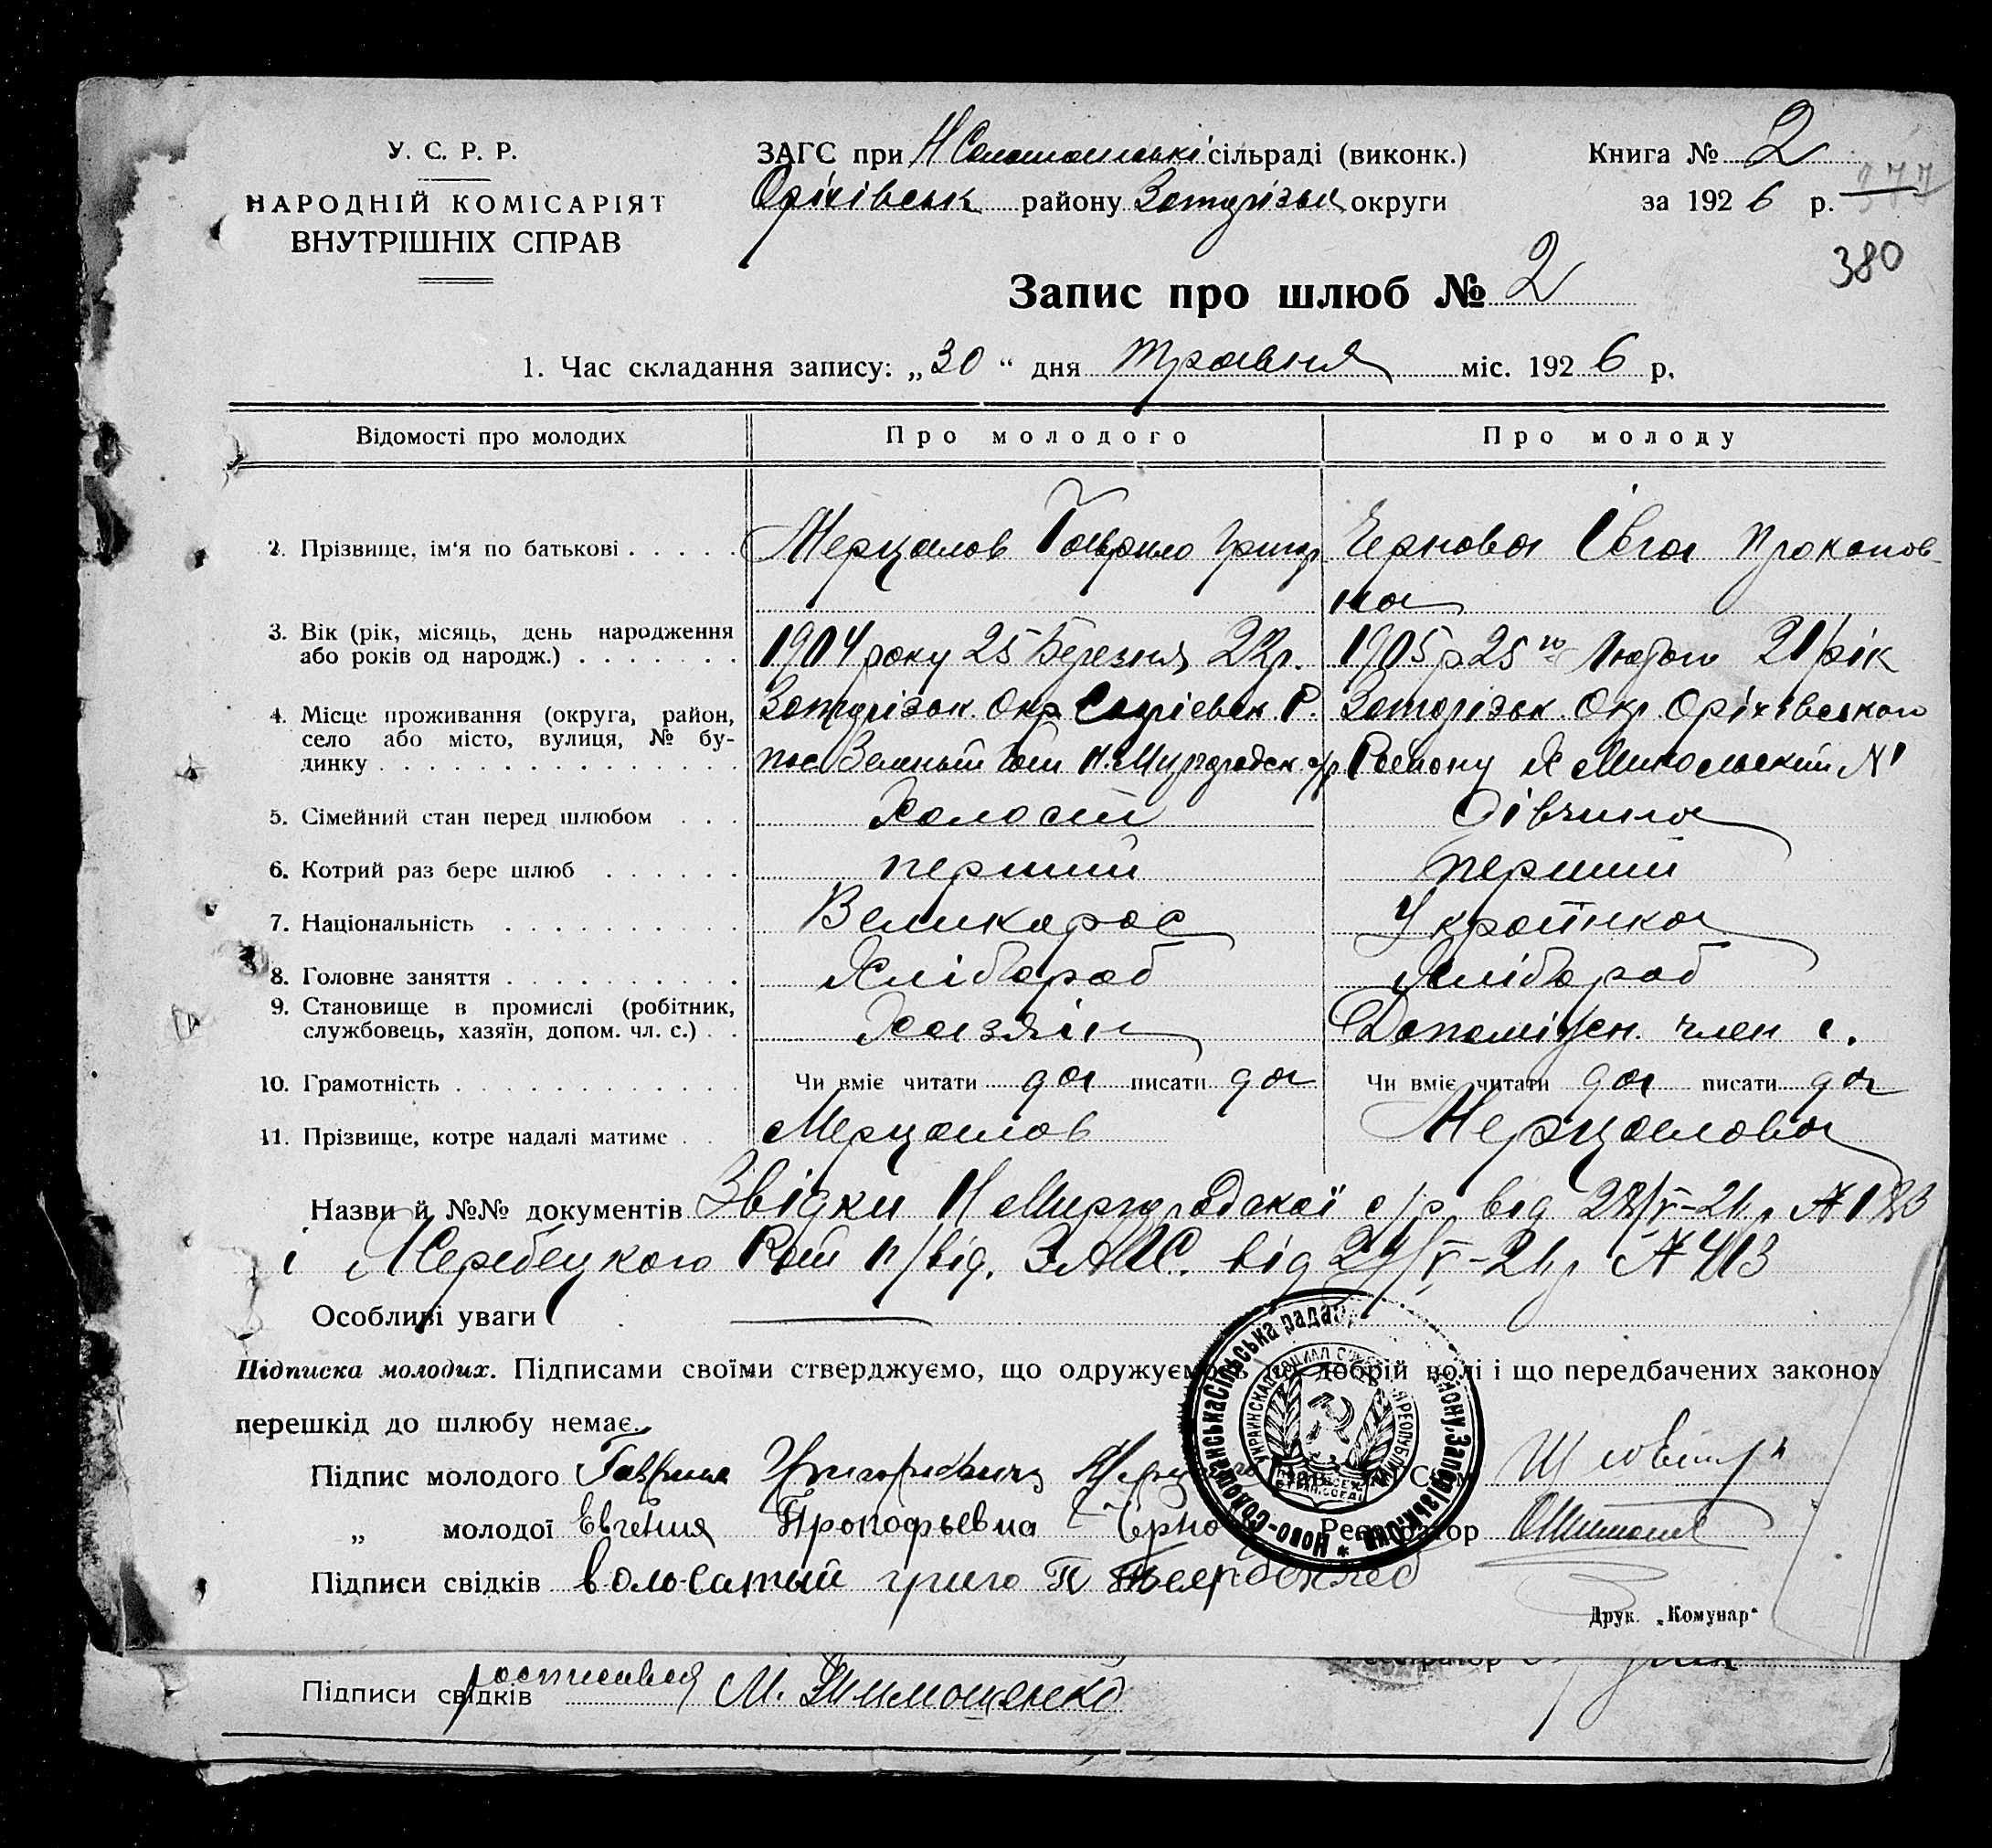 У. С. Р. Р.
НАРОДНІЙ КОМІСАРІЯТ
ВНУТРІШНІХ СПРАВ
ЗАГС при сільраді (виконк.)
Оріхівськ району Запорізьк округи
Книга № 2
за 1926 р.
377
380
Запис про шлюб № 2
1. Час складання запису: „30“ дня травня міс. 1926 р.
Відомості про молодих
Про молодого
Про молоду
2. Прізвище, ім'я по батькові
Мерцалов Гаврило Григор.
Чернова Євга Прокопов-
на
3. Вік (рік, місяць, день народження
або років од народж.)
1904 року 25 Березня 22 р.
1905 р 25го Лютого 21 рік
4. Місце проживання (округа, район,
село або місто, вулиця, № бу-
динку
Запорізьк. Окр. Р.
пос Зеленый Гай Н. Миргородск. с/р
Запорізьк. Окр. Оріхівського
Району Х Микольский №1
5. Сімейний стан перед шлюбом
Холостй
Дівчина
6. Котрий раз бере шлюб
перший
перший
7. Національність
Великорос
Українка
8. Головне заняття
Хлібороб
Хлібороб
9. Становище в промислі (робітник,
службовець, хазяїн, допом. чл. с.)
Хазяїн
член с.
10. Грамотність
Чи вміє читати да писати да
Чи вміє читати да писати да
11. Прізвище, котре надалі матиме
Мерцалов
Мерцалова
Назви й №№ документів Звідки Н Миргородскої с/р від № 183
і Жеребецкого Рай п/від. ЗАГС. від № 413
Особливі уваги
Підписка молодих. Підписами своїми стверджуємо, що одружуємо добрій волі і що передбачених законом
перешкід до шлюбу немає.
Підпис молодого Гаврил Григориевич
„ молодої Евгения Прокофьевна Черно
Реєстратор
Підписи свідків волосатый григо П
Друк. „Комунар“
Ново-Солошанська сільська рада Запорізьк. Окр.
Реєстратор
Підписи свідків М. Тимошенко